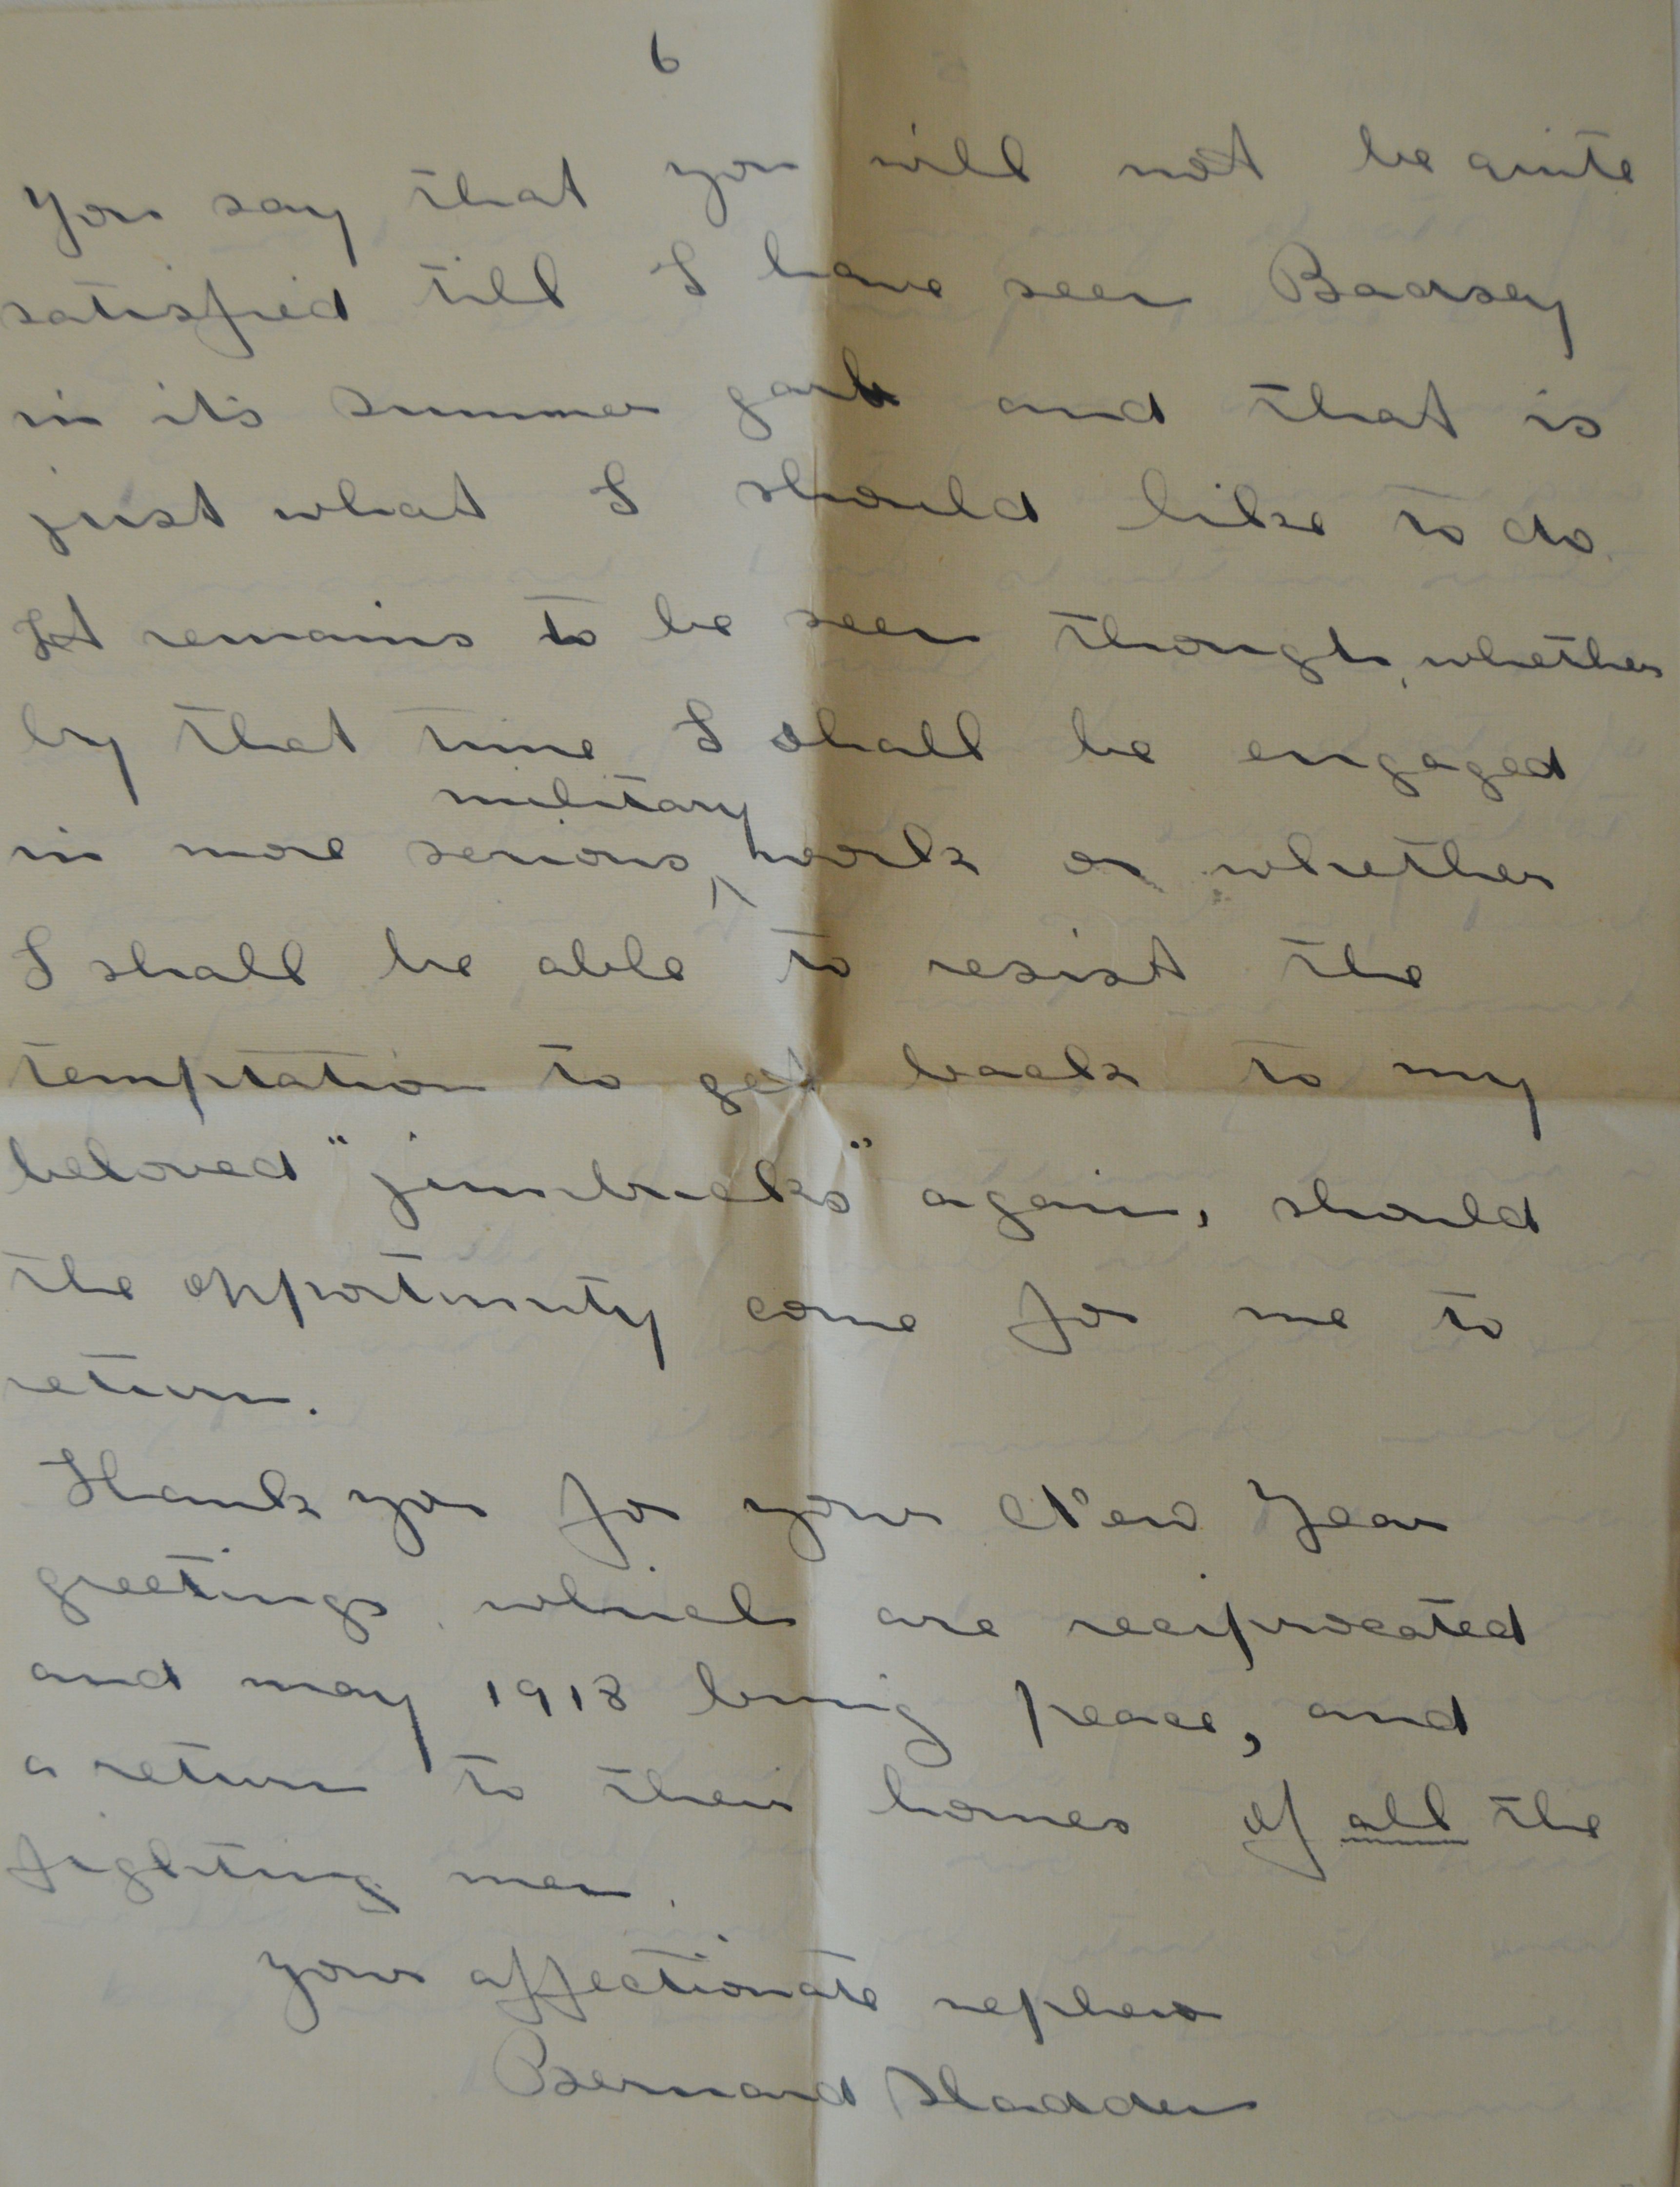 6
You say that you will not be quite
satisfied till I have seen Badsey
in it's summer garb and that is
just what I should like to do.
It remains to be seen though, whether
by that time I shall be engaged
military
in more serious work or whether
I shall be able to resist the
temptation to get back to my
beloved "jinnbucks" again, should
the opportunity come for me to
return.
Thank you for your New Year
greetings which are reciprocated
and may 1918 bring peace, and
a return to their homes of all the
fighting men.
Your affectionate nephew
Bernard Sladden